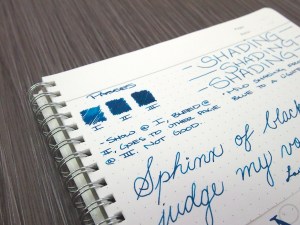 PASSES
SHADING
SHADING
SHADING
I II III
• MILD SHADING
BLUE TO A
- SHOW @ I, BLEED @
II, GOES TO OTHER PAGE
@ III. NOT GOOD.
Sphinx of black
judge my vo